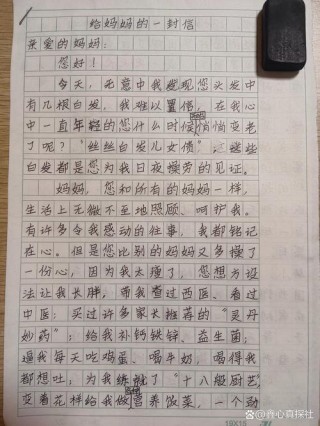 给妈妈的一封信
亲爱的妈妈：
您好！
今天，无意中我发现您头发中
有几根白发，我难以置信，在我心
中一直年轻的您什么时候悄悄变老
了呢？“丝丝白发儿女债”，这些
白发都是您为我日夜操劳的见证。
妈妈，您和所有的妈妈一样，
生活上无微不至地照顾、呵护我。
有许多令我感动的往事，我都铭记
在心。但是您比别的妈妈又多操了
一份心，因为我太瘦了，您想方设
法让我长胖，带我查过西医、看过
中医；买过许多家长推荐的“灵丹
妙药”；给我补钙铁锌、益生菌；
逼我每天吃鸡蛋、喝牛奶，喝得我
都想吐；为我练就了“十八般厨艺”
变着花样给我做营养饭菜，一个劲
18×15
@鑫心真探社